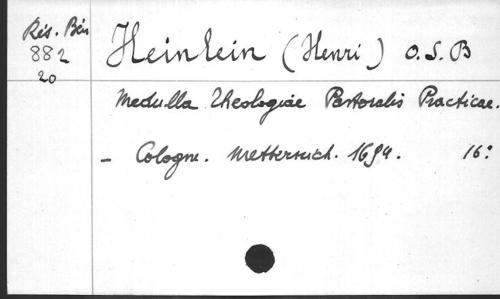 Rés. Bén
882
20
Heinlein (Henri) O.S.B
Medulla Theologiae Pastoralis Practicae.
- Cologne. Metternich. 1694. 16°